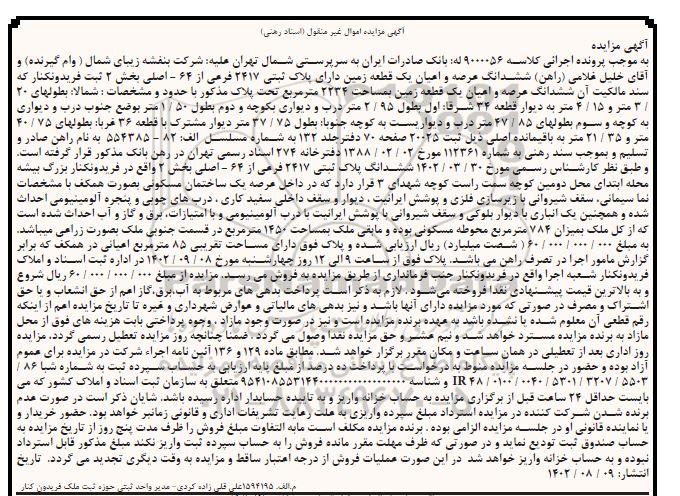 آگهی مزایده اموال غیر منقول (اسناد رهنی)
آگهی مزایده
به موجب پرونده اجرائی کلاسه ۹۰۰۰۰۵۶ له: بانک صادرات ایران به سرپرستی شمال تهران علیه: شرکت بنفشه زیبای شمال ( وام گیرنده) و
آقای خلیل غلامی (راهن) ششدانگ عرصه و اعیان یک قطعه زمین دارای پلاک ثبتی ۲۴۱۷ فرعی از ۶۴ - اصلی بخش ۲ ثبت فریدونکنار که
سند مالکیت آن ششدانگ عرصه و اعیان یک قطعه زمین به مساحت ۲۲۳۴ مترمربع تحت پلاک مذکور با حدود و مشخصات : شمالا: بطولهای ۲۰
/ ۳ متر و ۱۵ / ۴ متر به دیوار قطعه ۳۴ شرقا: اول بطول ۹۵ / ۲ متر درب و دیواری بکوچه و دوم بطول ۵۰ / ۱ متر بوضع جنوب درب و دیواری
به کوچه و سوم بطولهای ۸۵ / ۴۷ متر درب و دیواریست به کوچه جنوبا: بطول ۷۵ / ۳۷ متر دیوار مشترک با قطعه ۳۶ غربا: بطولهای ۷۵ / ۴۰
متر و ۳۵ / ۲۱ متر به باقیمانده اصلی ذیل ثبت ۲۰۰۲۵ صفحه ۷۰ دفترجلد ۱۳۲ به شماره مسلسل الف: ۸۲ - ۵۵۴۳۸۵ به نام راهن صادر و
تسلیم و بموجب سند رهنی به شماره ۱۱۲۳۶۱ مورخ ۰۲ / ۰۲ / ۱۳۸۸ دفترخانه ۲۷۴ اسناد رسمی تهران در رهن بانک مذکور قرار گرفته است.
و طبق نظر کارشناس رسمی مورخ ۳۰ / ۰۳ / ۱۴۰۲ ششدانگ پلاک ثبتی ۲۴۱۷ فرعی از ۶۴ - اصلی بخش ۲ واقع در فریدونکنار بزرگ بیشه
محله ابتدای محل دومین کوچه سمت راست کوچه شهدای ۳ قرار دارد که در داخل عرصه یک ساختمان مسکونی بصورت همکف با مشخصات
نما سیمانی، سقف شیروانی با زیرسازی فلزی و پوشش ایرانیت ، دیوار و سقف داخلی سفید کاری ، درب های چوبی و پنجره آلومینیومی احداث
شده و همچنین یک انباری با دیوار بلوکی و سقف شیروانی با پوشش ایرانیت با درب آلومینیومی و با امتیازات، برق و گاز و آب احداث شده است
که از کل ملک بمیزان ۷۸۴ مترمربع محوطه مسکونی بوده و مابقی ملک بمساحت ۱۴۵۰ مترمربع در قسمت جنوبی ملک بصورت زراعی میباشد.
به مبلغ ۰۰۰ / ۰۰۰ / ۰۰۰ / ۶۰ ( شصت میلیارد) ریال ارزیابی شده و پلاک فوق دارای مساحت تقریبی ۸۵ مترمربع اعیانی در همکف که برابر
گزارش مامور اجرا در تصرف راهن می باشد. پلاک فوق از ساعت ۹ الی ۱۲ روز چهارشنبه مورخ ۰۸ / ۰۹ / ۱۴۰۲ در اداره ثبت اسناد و املاک
فریدونکنار شعبه اجرا واقع در فریدونکنار جنب فرمانداری از طریق مزایده به فروش می رسد. مزایده از مبلغ ۰۰۰ / ۰۰۰ / ۰۰۰ / ۶۰ ریال شروع
و به بالاترین قیمت پیشنهادی نقدا فروخته می‌شود. لازم به ذکر است پرداخت بدهی های مربوط به آب،برق،گاز اعم از حق انشعاب و یا حق
اشتراک و مصرف در صورتی که مورد مزایده دارای آنها باشد و نیز بدهی های مالیاتی و عوارض شهرداری و غیره تا تاریخ مزایده اعم از اینکه
رقم قطعی آن معلوم شده یا نشده باشد به عهده برنده مزایده است و نیز در صورت وجود مازاد ، وجوه پرداختی بابت هزینه های فوق از محل
مازاد به برنده مزایده مسترد خواهد شد و نیم عشر و حق مزایده نقدا وصول می گردد. ضمنا چنانچه روز مزایده تعطیل رسمی گردد، مزایده
روز اداری بعد از تعطیلی در همان ساعت و مکان مقرر برگزار خواهد شد. مطابق ماده ۱۲۹ و ۱۳۶ آئین نامه اجراء شرکت در مزایده برای عموم
آزاد بوده و حضور در جلسه مزایده منوط به درخواست با پرداخت ده درصد از مبلغ پایه ارزیابی به سپرده ثبت به شماره شبا ۸۶ /
۵۵۰۳ / ۳۲۰۷ / ۵۳۰۱ / ۰۰۴۰ / ۰۱۰۰ / ۴۸ IR و شناسه متعلق به سازمان ثبت اسناد و املاک کشور که می
بایست حداقل ۲۴ ساعت قبل از برگزاری مزایده به حساب خزانه واریز و به تائید حسابدار اداره رسیده باشد. شایان ذکر است در صورت عدم
برنده شدن شرکت کننده در مزایده استرداد مبلغ سپرده واریزی به علت رعایت تشریفات اداری و قانونی زمانبر خواهد بود. حضور خریدار و
یا نماینده قانونی او در جلسه مزایده الزامی بوده . برنده مزایده مکلف است مابه التفاوت مبلغ فروش را ظرف مدت پنج روز از تاریخ مزایده به
حساب صندوق ثبت تودیع نماید و در صورتی که ظرف مهلت مقرر مانده فروش را به حساب سپرده ثبت واریز نکند مبلغ مذکور قابل استرداد
نبوده و به حساب خزانه واریز خواهد شد در این صورت عملیات فروش از درجه اعتبار ساقط و مزایده به وقت دیگری تجدید می گردد. تاریخ
انتشار: ۰۹ / ۰۸ / ۱۴۰۲
م.الف. ۱۵۹۴۱۹۵علی قلی زاده کردی- مدیر واحد ثبتی حوزه ثبت ملک فریدون کنار